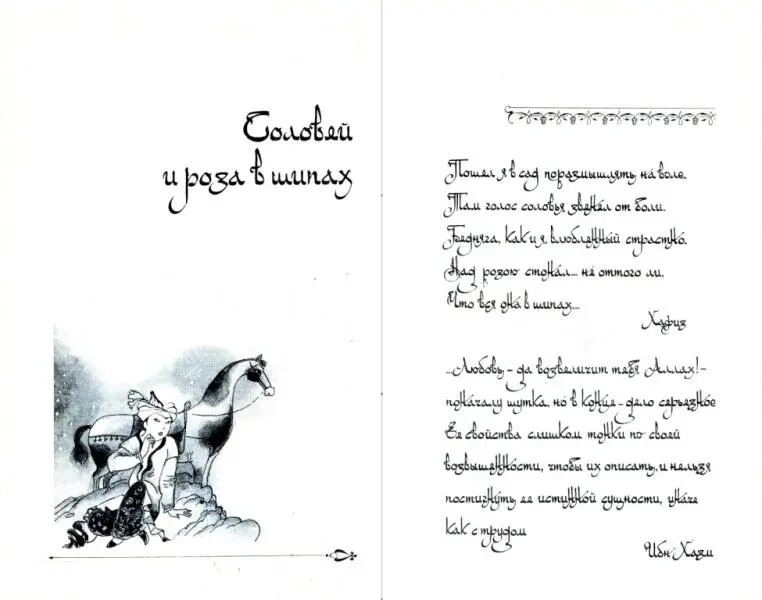 Соловей
и роза в шипах
Пошел я в сад поразмышлять на воле.
Там голос соловья звенел от боли.
Бедняга, как и я, влюбленный страстно,
Над розою стонал... не оттого ли,
Что вся она в шипах...
Хафиз
...Любовь – да возвеличит тебя Аллах! –
поначалу шутка, но в конце – дело серьезное
Ее свойства слишком тонки по своей
возвышенности, чтобы их описать, и нельзя
постигнуть ее истинной сущности, иначе
как с трудом
Ибн Хазм